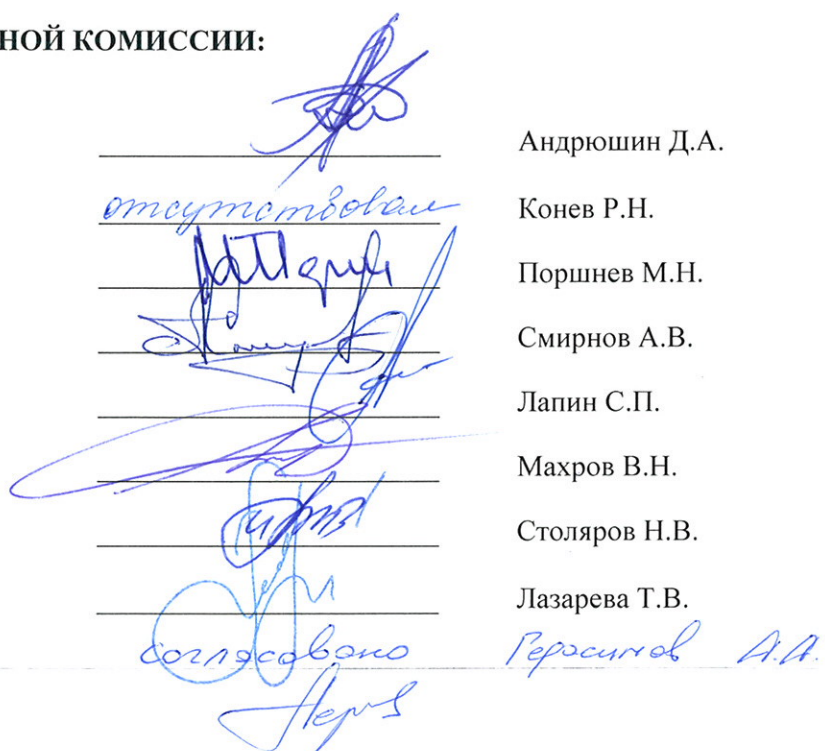 НОЙ КОМИССИИ:
Андрюшин Д.А.
отсутствовал Конев Р.Н.
Поршнев М.Н.
Смирнов А.В.
Лапин С.П.
Махров В.Н.
Столяров Н.В.
Лазарева Т.В.
согласовано Герасимов А.А.